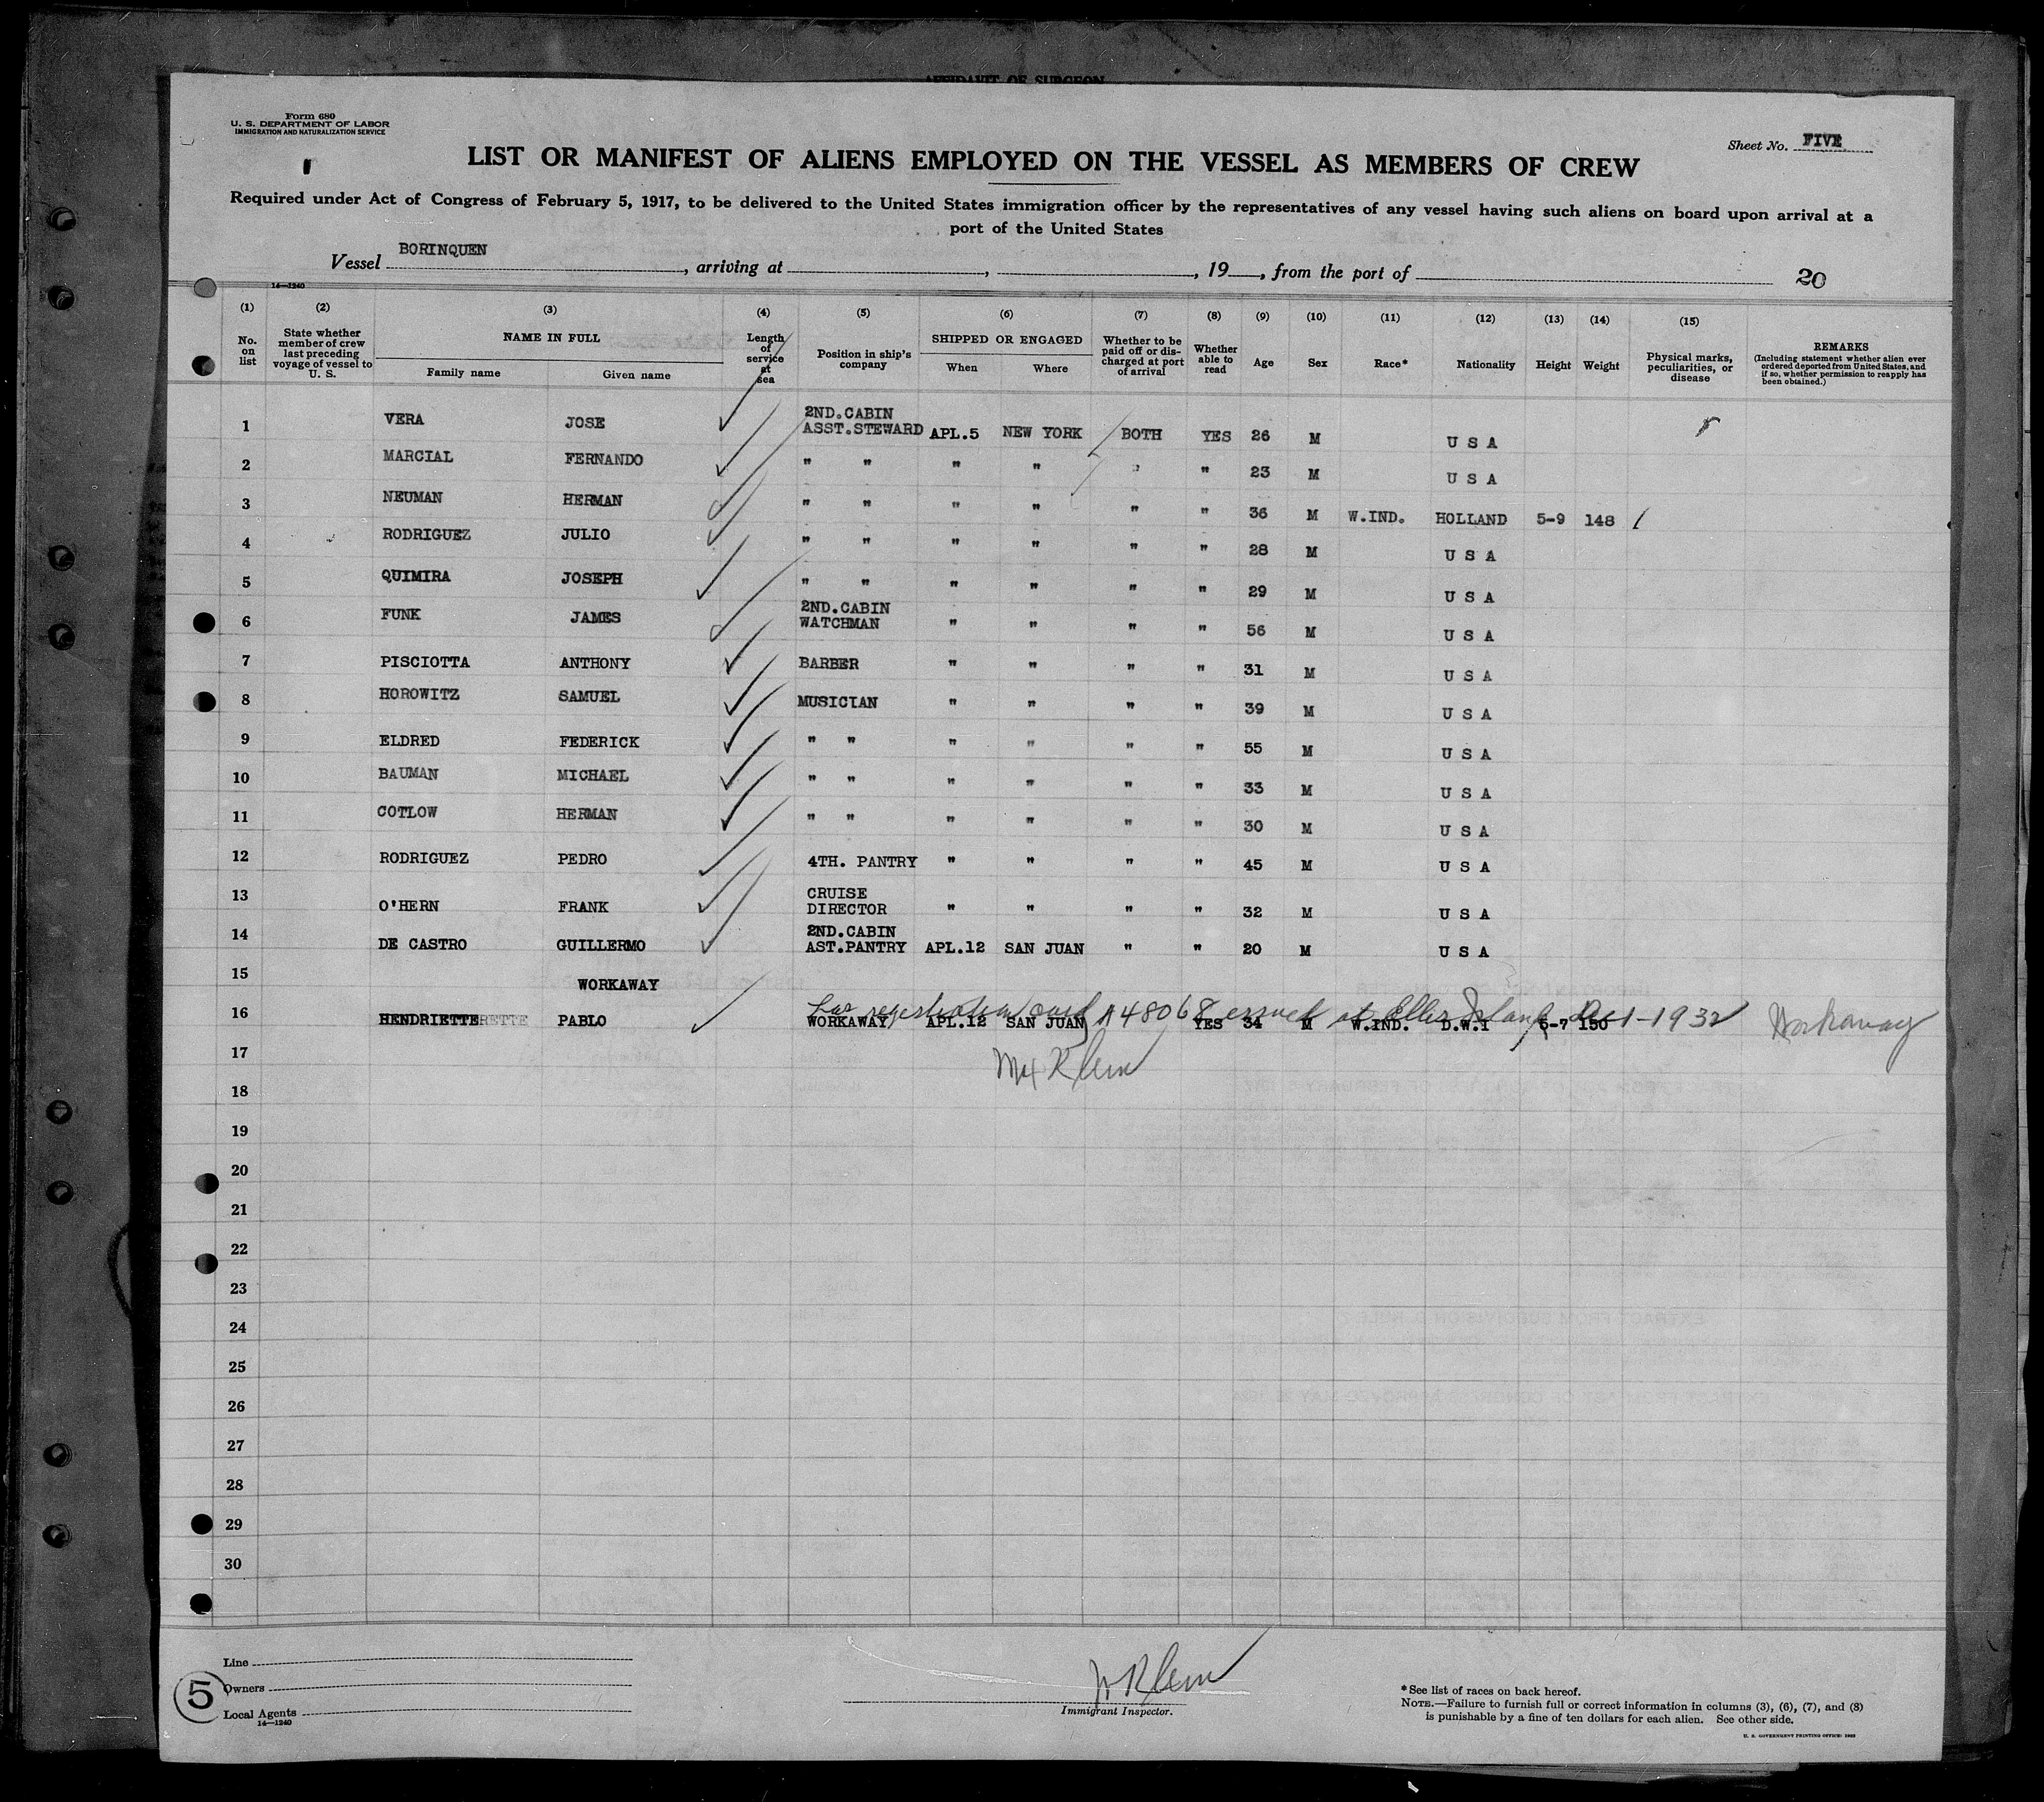 AFFIDAVIT OF SURGEON
Form 680
U. S. DEPARTMENT OF LABOR
IMMIGRATION AND NATURALIZATION SERVICE
Sheet No. FIVE
LIST OR MANIFEST OF ALIENS EMPLOYED ON THE VESSEL AS MEMBERS OF CREW
Required under Act of Congress of February 5, 1917, to be delivered to the United States immigration officer by the representatives of any vessel having such aliens on board upon arrival at a
port of the United States
Vessel BORINQUEN, arriving at , , 19 , from the port of 20
14—1240
(1) (2) (3) (4) (5) (6) (7) (8) (9) (10) (11) (12) (13) (14) (15)
No. on list State whether member of crew last preceding voyage of vessel to U. S. NAME IN FULL Family name Given name Length of service at sea Position in ship's company SHIPPED OR ENGAGED When Where Whether to be paid off or discharged at port of arrival Whether able to read Age Sex Race* Nationality Height Weight Physical marks, peculiarities, or disease REMARKS (Including statement whether alien ever ordered deported from United States, and if so, whether permission to reapply has been obtained.)
1 VERA JOSE 2ND.CABIN ASST.STEWARD APL.5 NEW YORK BOTH YES 26 M U S A
2 MARCIAL FERNANDO " " " " " " 23 M U S A
3 NEUMAN HERMAN " " " " " " 36 M W.IND. HOLLAND 5-9 148
4 RODRIGUEZ JULIO " " " " " " 28 M U S A
5 QUIMIRA JOSEPH " " " " " " 29 M U S A
6 FUNK JAMES 2ND.CABIN WATCHMAN " " " " 56 M U S A
7 PISCIOTTA ANTHONY BARBER " " " " 31 M U S A
8 HOROWITZ SAMUEL MUSICIAN " " " " 39 M U S A
9 ELDRED FEDERICK " " " " " " 55 M U S A
10 BAUMAN MICHAEL " " " " " " 33 M U S A
11 COTLOW HERMAN " " " " " " 30 M U S A
12 RODRIGUEZ PEDRO 4TH. PANTRY " " " " 45 M U S A
13 O'HERN FRANK CRUISE DIRECTOR " " " " 32 M U S A
14 DE CASTRO GUILLERMO 2ND.CABIN AST.PANTRY APL.12 SAN JUAN " " 20 M U S A
15 WORKAWAY
has registration card A48068 issued at Ellis Island Dec 1-1932
16 HENDRIETTE PABLO WORKAWAY APL.12 SAN JUAN YES 34 M W.IND. D.W.I 5-7 150 Workaway
17 Klein
18
19
20
21
22
23
24
25
26
27
28
29
30
Line
Owners
Local Agents
14—1240
5
Klein
Immigrant Inspector.
* See list of races on back hereof.
NOTE.—Failure to furnish full or correct information in columns (3), (6), (7), and (8)
is punishable by a fine of ten dollars for each alien. See other side.